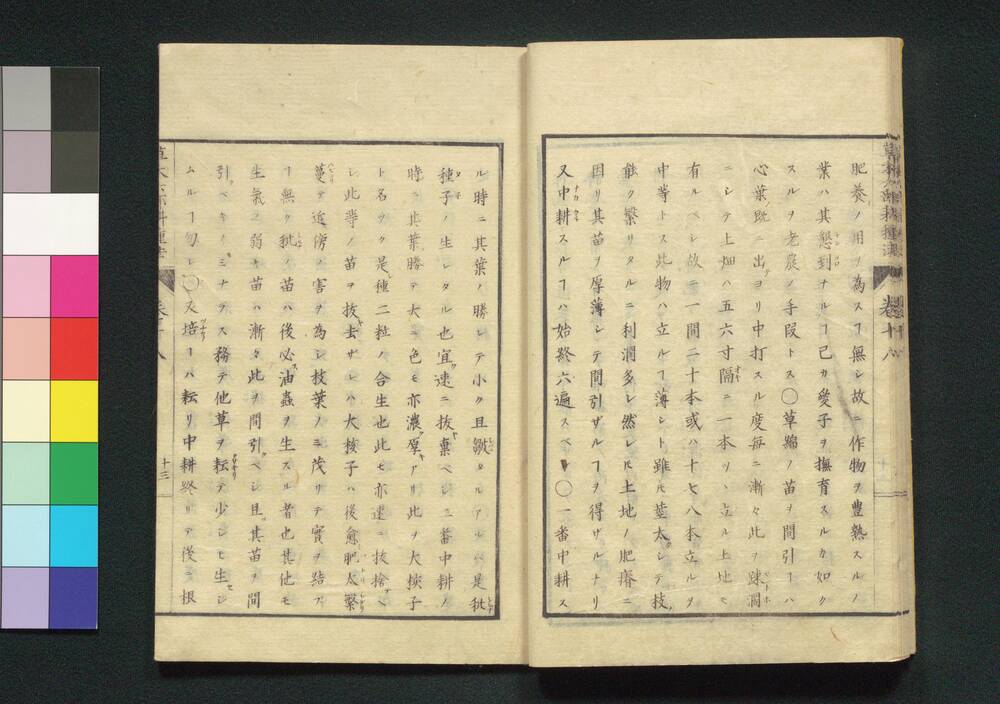 肥養ノ用ヲ為スヿ無シ故ニ作物ヲ豊熟スルノ
葉ハ其懇到ナルヿ己カ愛子ヲ撫育スルカ如ク
スルヲ老農ノ手段トス〇草綿ノ苗ヲ間引ヿハ
心葉既ニ出テヨリ中打スル度毎ニ漸々此ヲ疎濶
ニシテ上畑ハ五六寸隔ニ一本ヅヽ立ル上地ニ
有ルベシ故ニ一間二十本或ハ十七八本立ルヲ
中等トス此物ハ立ルヿ薄シト雖ドモ莖太シテ技
能ク繁リタルニ利潤多シ然レドモ土地ノ肥瘠ニ
因リ其苗ヲ厚薄シテ間引ザルヿヲ得ザルナリ
又中耕スルヿハ始終六遍スベシ〇一番中耕ス
ル時ニ其葉ノ勝レテ小ク且皺タルアルハ是秕
種子ノ生レタル也宜速ニ抜棄ベシ二番中耕ノ
時ニ其葉勝テ大ニ色モ亦濃厚アリ此ヲ大核子
ト名ツク是種二粒ノ合生也此モ亦速ニ抜捨ベ
シ此等ノ苗ヲ抜去ザレハ大核子ハ後愈肥太繁
蔓テ近傍ノ害ヲ為シ枝葉ノミ茂リテ實ヲ結ブ
ヿ無ク秕ノ苗ハ後必油蟲ヲ生スル者也其他モ
生氣ノ弱キ苗ハ漸々此ヲ間引ベシ且其苗ヲ間
引ベキノミナラス務テ他草ヲ耘テ少シモ生セシ
ムルヿ勿レ〇又培ヿハ耘リ中耕終リテ後ニ根
巻十八
十三